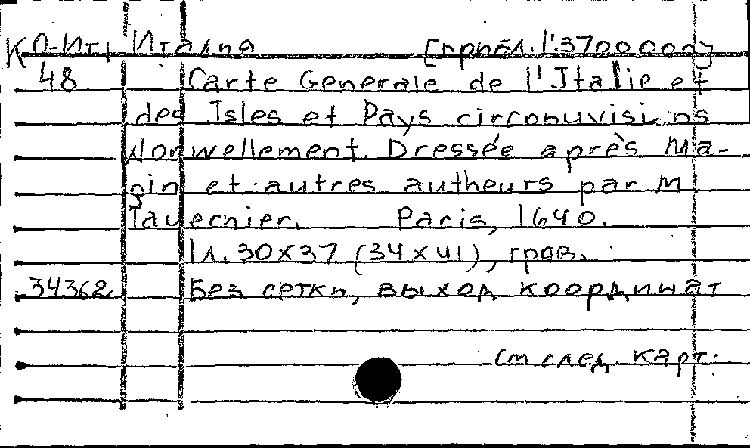 К О-Ит Италия [прибл. 1:3700000]
48 Carte Generale de l'Italie et
des Isles et Pays circonuvisins
Nouvellement Dressée après Ma-
gin et autres autheurs par M
Tavernier. Paris, 1640.
1 л. 30x37 (34x41), грав.
34362 Без сетки, выход координат
См след. карт.